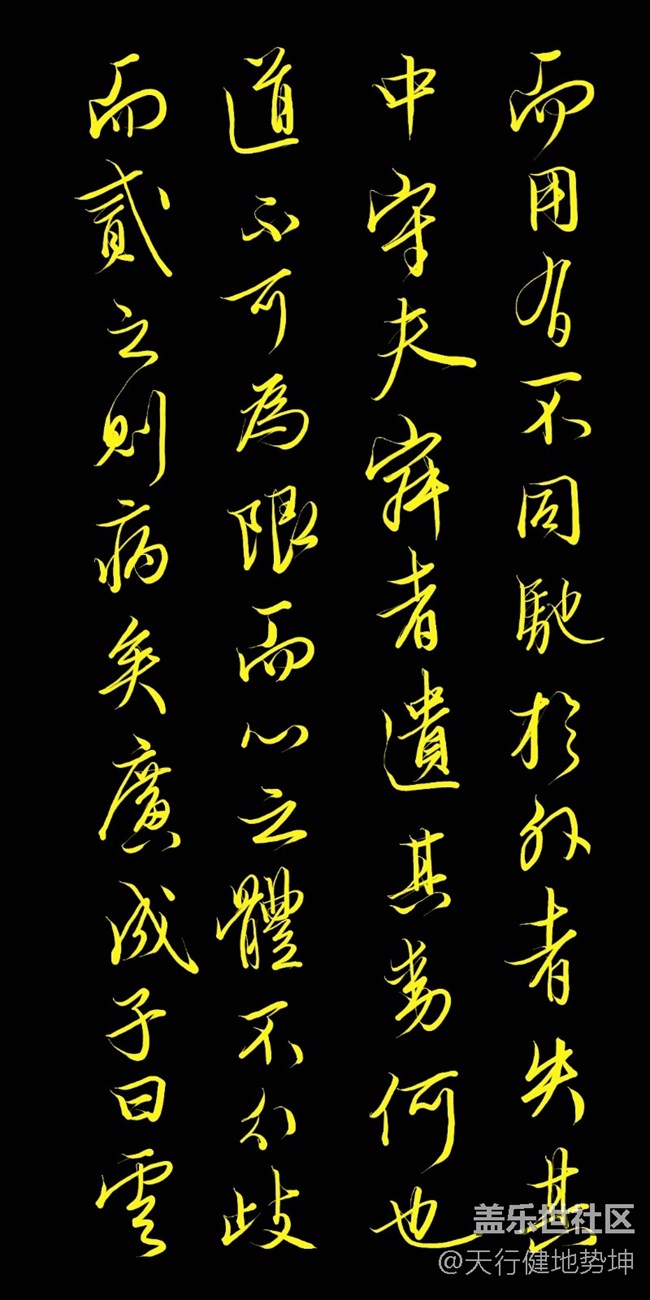 而用有不同馳於外者失其
中守夫寂者遺其動何也
道不可為限而心之體不分歧
而貳之則病矣廣成子曰雲
盖乐世社区
@天行健地势坤